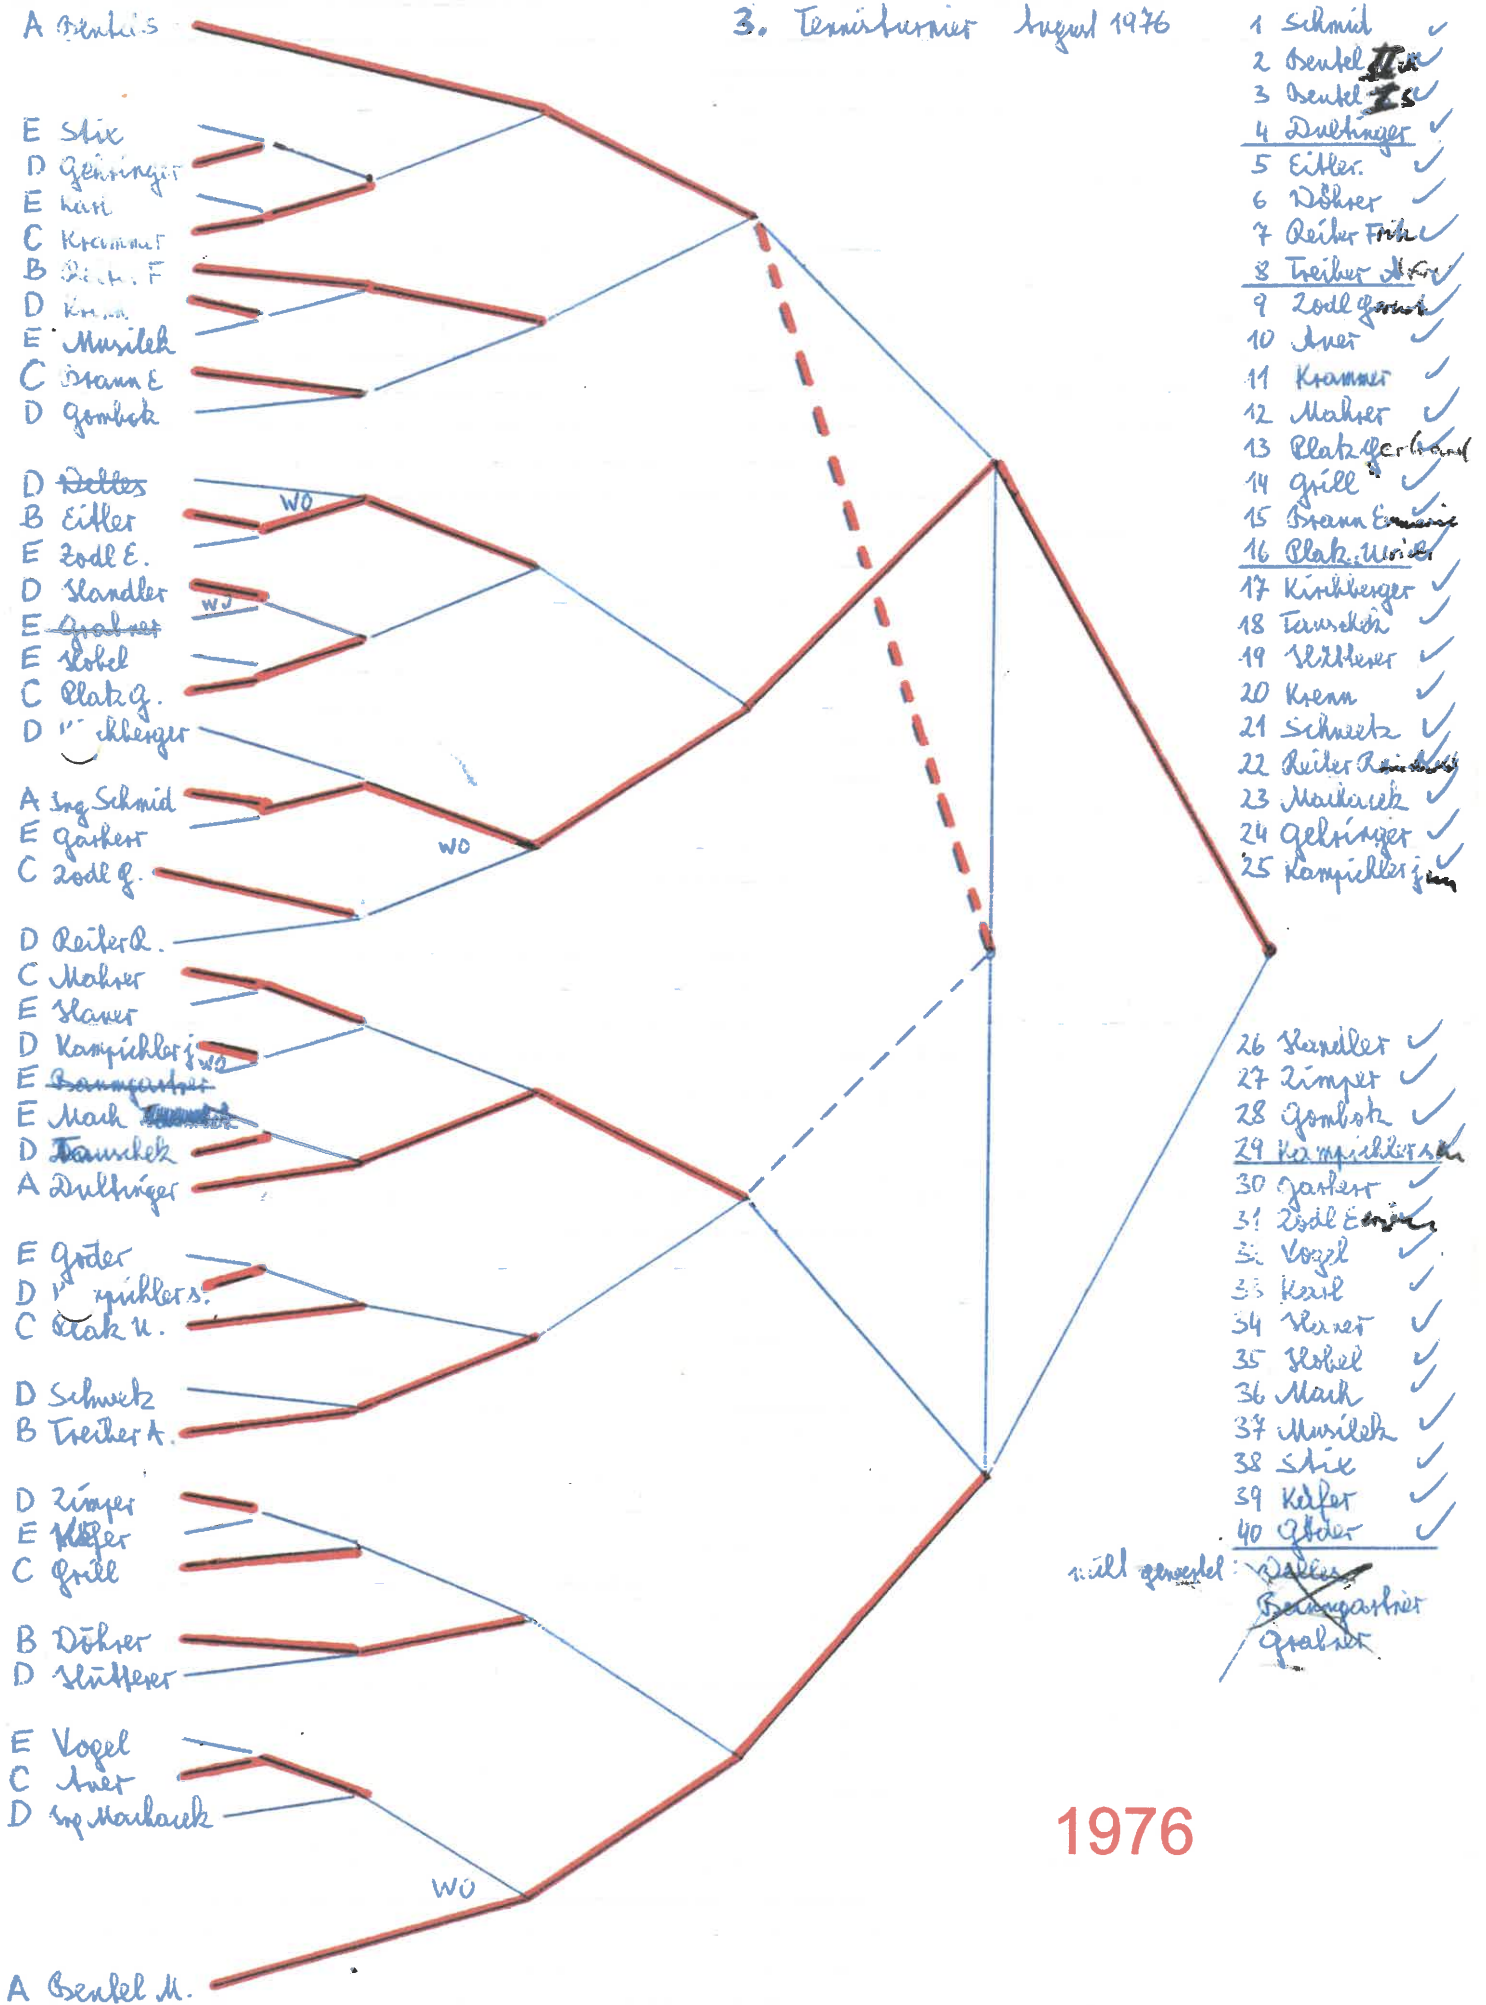 3. Tennisturnier August 1976
A Bentel S
E Stix
D Gehringer
E Karl
C Krammer
B Reiter F
D Krenn
E Musilek
C Braun E
D Gombok
D Delles
WO
B Eitler
E Zodl E.
D Handler
WO
E Grabner
E Hobel
C Platz G.
D chberger
A Ing Schmid
E Garherr
WO
C Zodl G.
D Reiter R.
C Mahrer
E Haner
D Kampichler j
WO
E Baumgartner
E Mach
D Tauschek
A Dultinger
E Göder
D pichler s.
C Platz U.
D Schwetz
B Treiber A.
D Zimper
E Käfer
C Grill
B Döhrer
D Hütterer
E Vogel
C Auer
D Ing Machacek
WO
A Bentel M.
1 Schmid
2 Bentel II
3 Bentel I S
4 Dultinger
5 Eitler.
6 Döhrer
7 Reiter Fritz
8 Treiber
9 Zodl Gernot
10 Auer
11 Krammer
12 Mahrer
13 Platz Gerhard
14 Grill
15 Braun
16 Platz Ulrich
17 Kirchberger
18 Tauschek
19 Hütterer
20 Krenn
21 Schwetz
22 Reiter
23 Machacek
24 Gehringer
25 Kampichler jun
26 Handler
27 Zimper
28 Gombok
29 Kampichler sen
30 Garherr
31 Zodl Erwin
3 Vogel
33 Karl
34 Haner
35 Hobel
36 Mach
37 Musilek
38 Stix
39 Käfer
40 Göder
nicht gewertet: Delles
Baumgartner
Grabner
1976